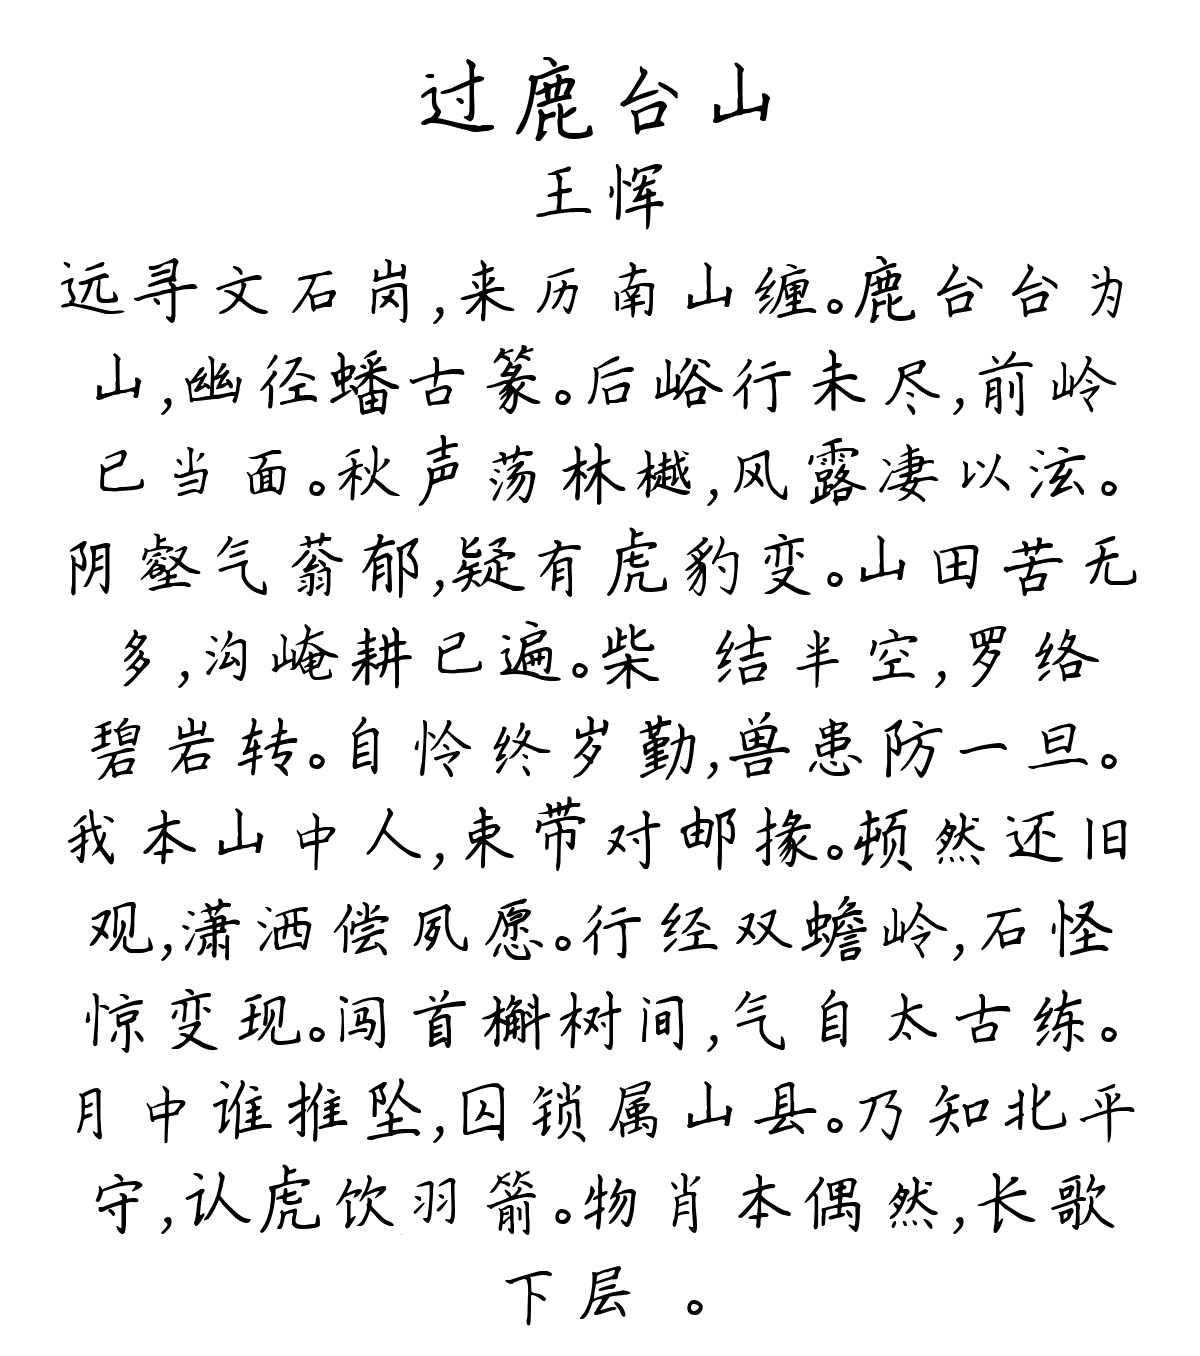 过鹿台山
王恽
远寻文石岗,来历南山缠。鹿台台为
山,幽径蟠古篆。后峪行未尽,前岭
已当面。秋声荡林樾,风露凄以泫。
阴壑气蓊郁,疑有虎豹变。山田苦无
多,沟崦耕已遍。柴 结半空,罗络
碧岩转。自怜终岁勤,兽患防一旦。
我本山中人,束带对邮掾。顿然还旧
观,潇洒偿夙愿。行经双蟾岭,石怪
惊变现。闯首槲树间,气自太古练。
月中谁推坠,囚锁属山县。乃知北平
守,认虎饮羽箭。物肖本偶然,长歌
下层 。